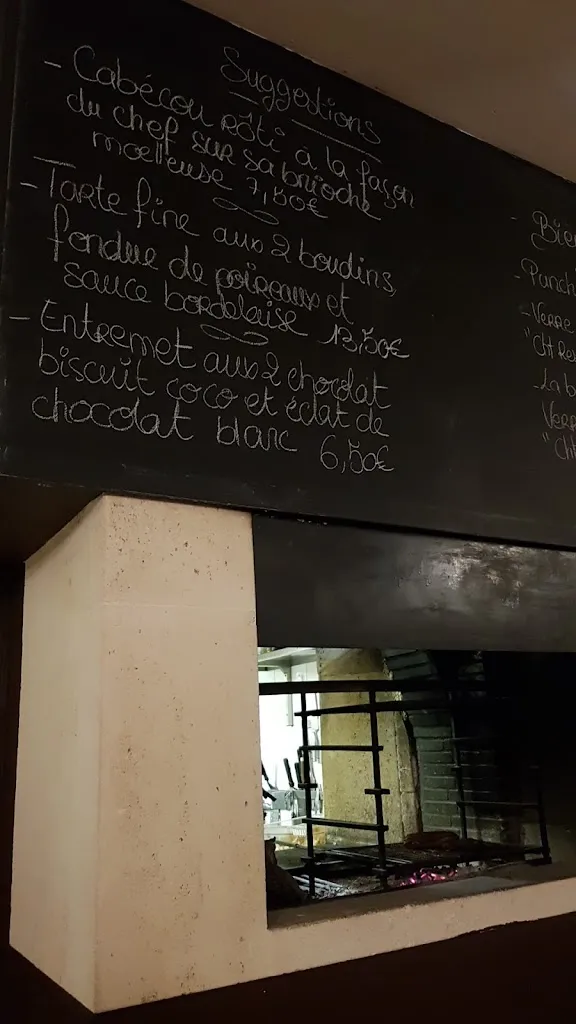 Suggestions
- Cabécou rôti à la façon
du chef sur sa brioche
moelleuse 7,50€
- Tarte fine aux 2 boudins,
fondue de poireaux et
sauce bordelaise 13,50€
- Entremet aux 2 chocolat
biscuit coco et éclat de
chocolat blanc 6,50€